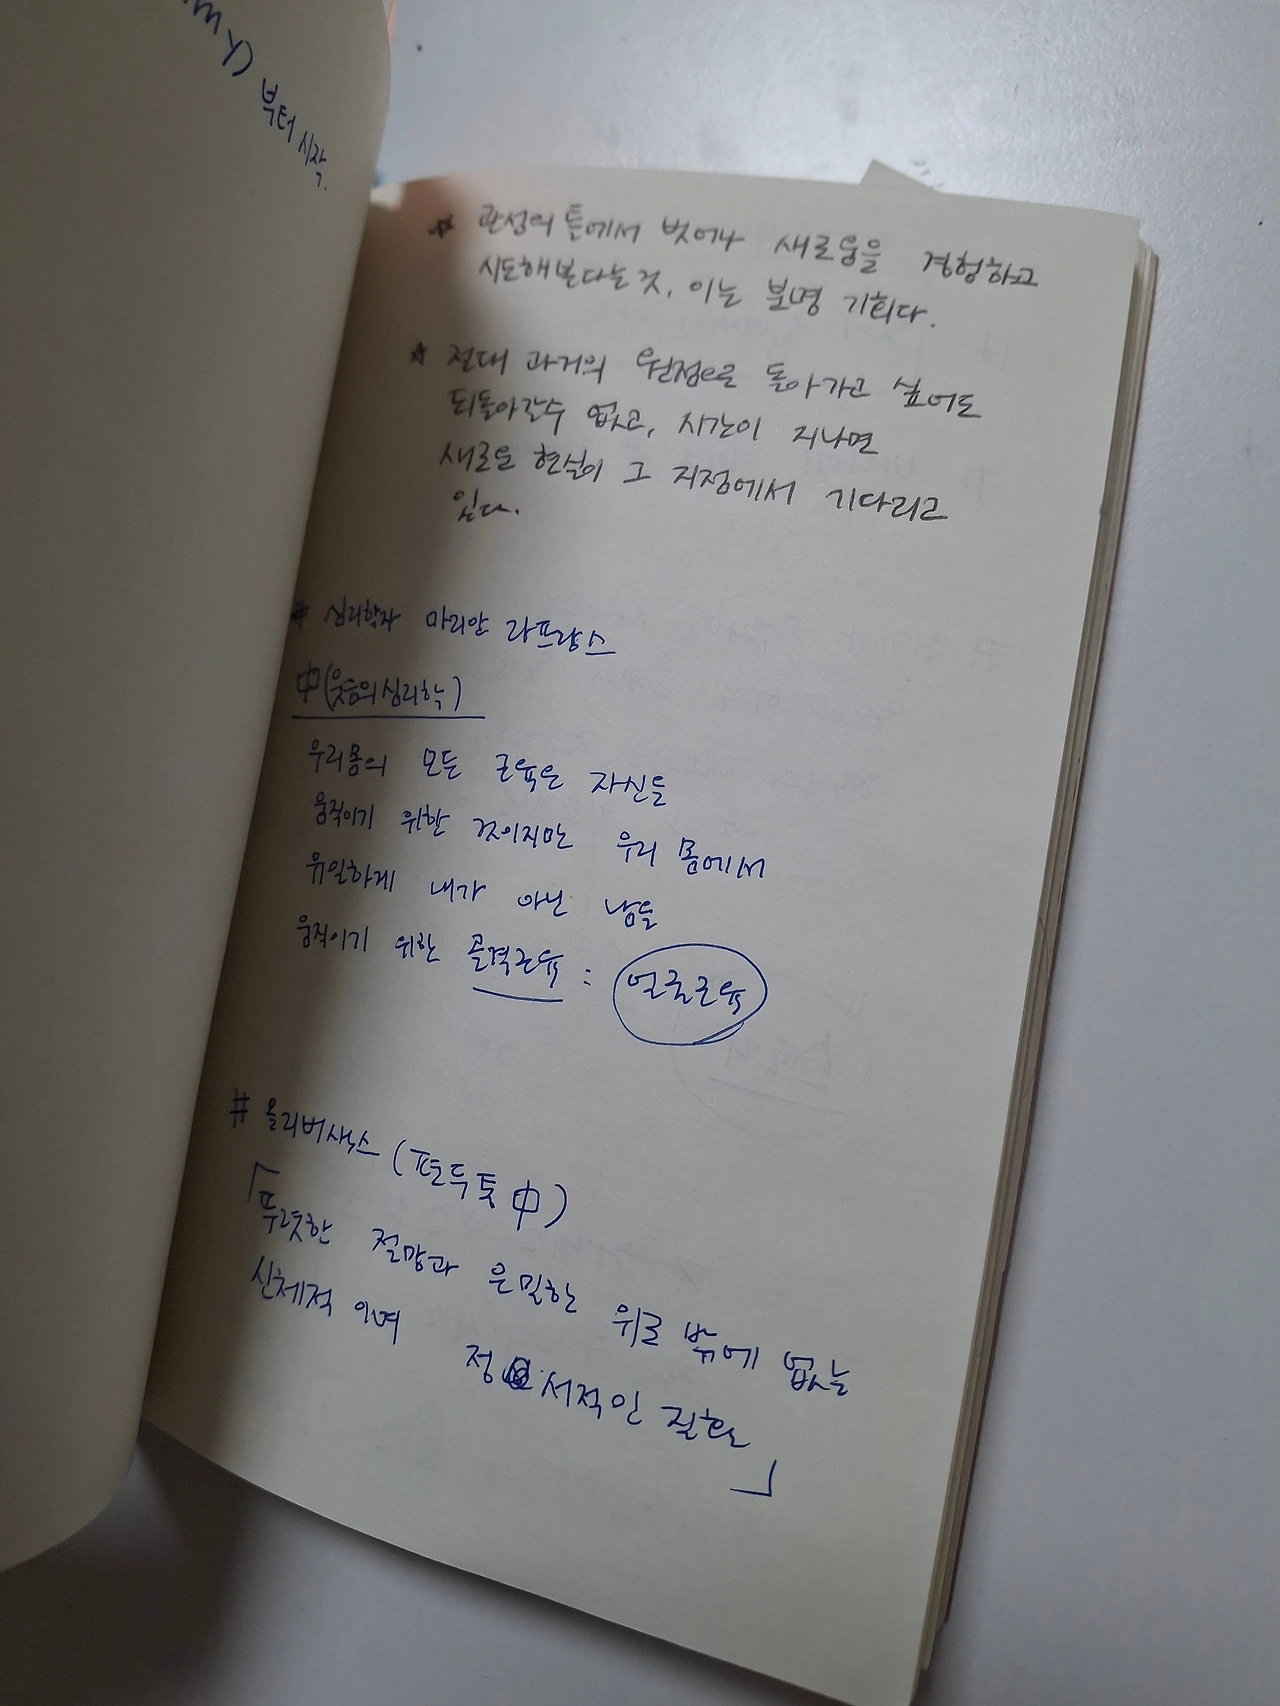 부터 시작.
* 관성의 틀에서 벗어나 새로움을 경험하고
시도해본다는 것, 이는 분명 기회다.
* 절대 과거의 원점으로 돌아가고 싶어도
되돌아갈수 없고, 시간이 지나면
새로운 현실이 그 지점에서 기다리고
있다.
# 심리학자 마리안 라프랑스
中(웃음의 심리학)
우리몸의 모든 근육은 자신을
움직이기 위한 것이지만 우리 몸에서
유일하게 내가 아닌 남을
움직이기 위한 골격근육 : 얼굴근육
# 올리버색스 (편두통 中)
「뚜렷한 절망과 은밀한 위로 밖에 없는
신체적 이며 정서적인 질환
」